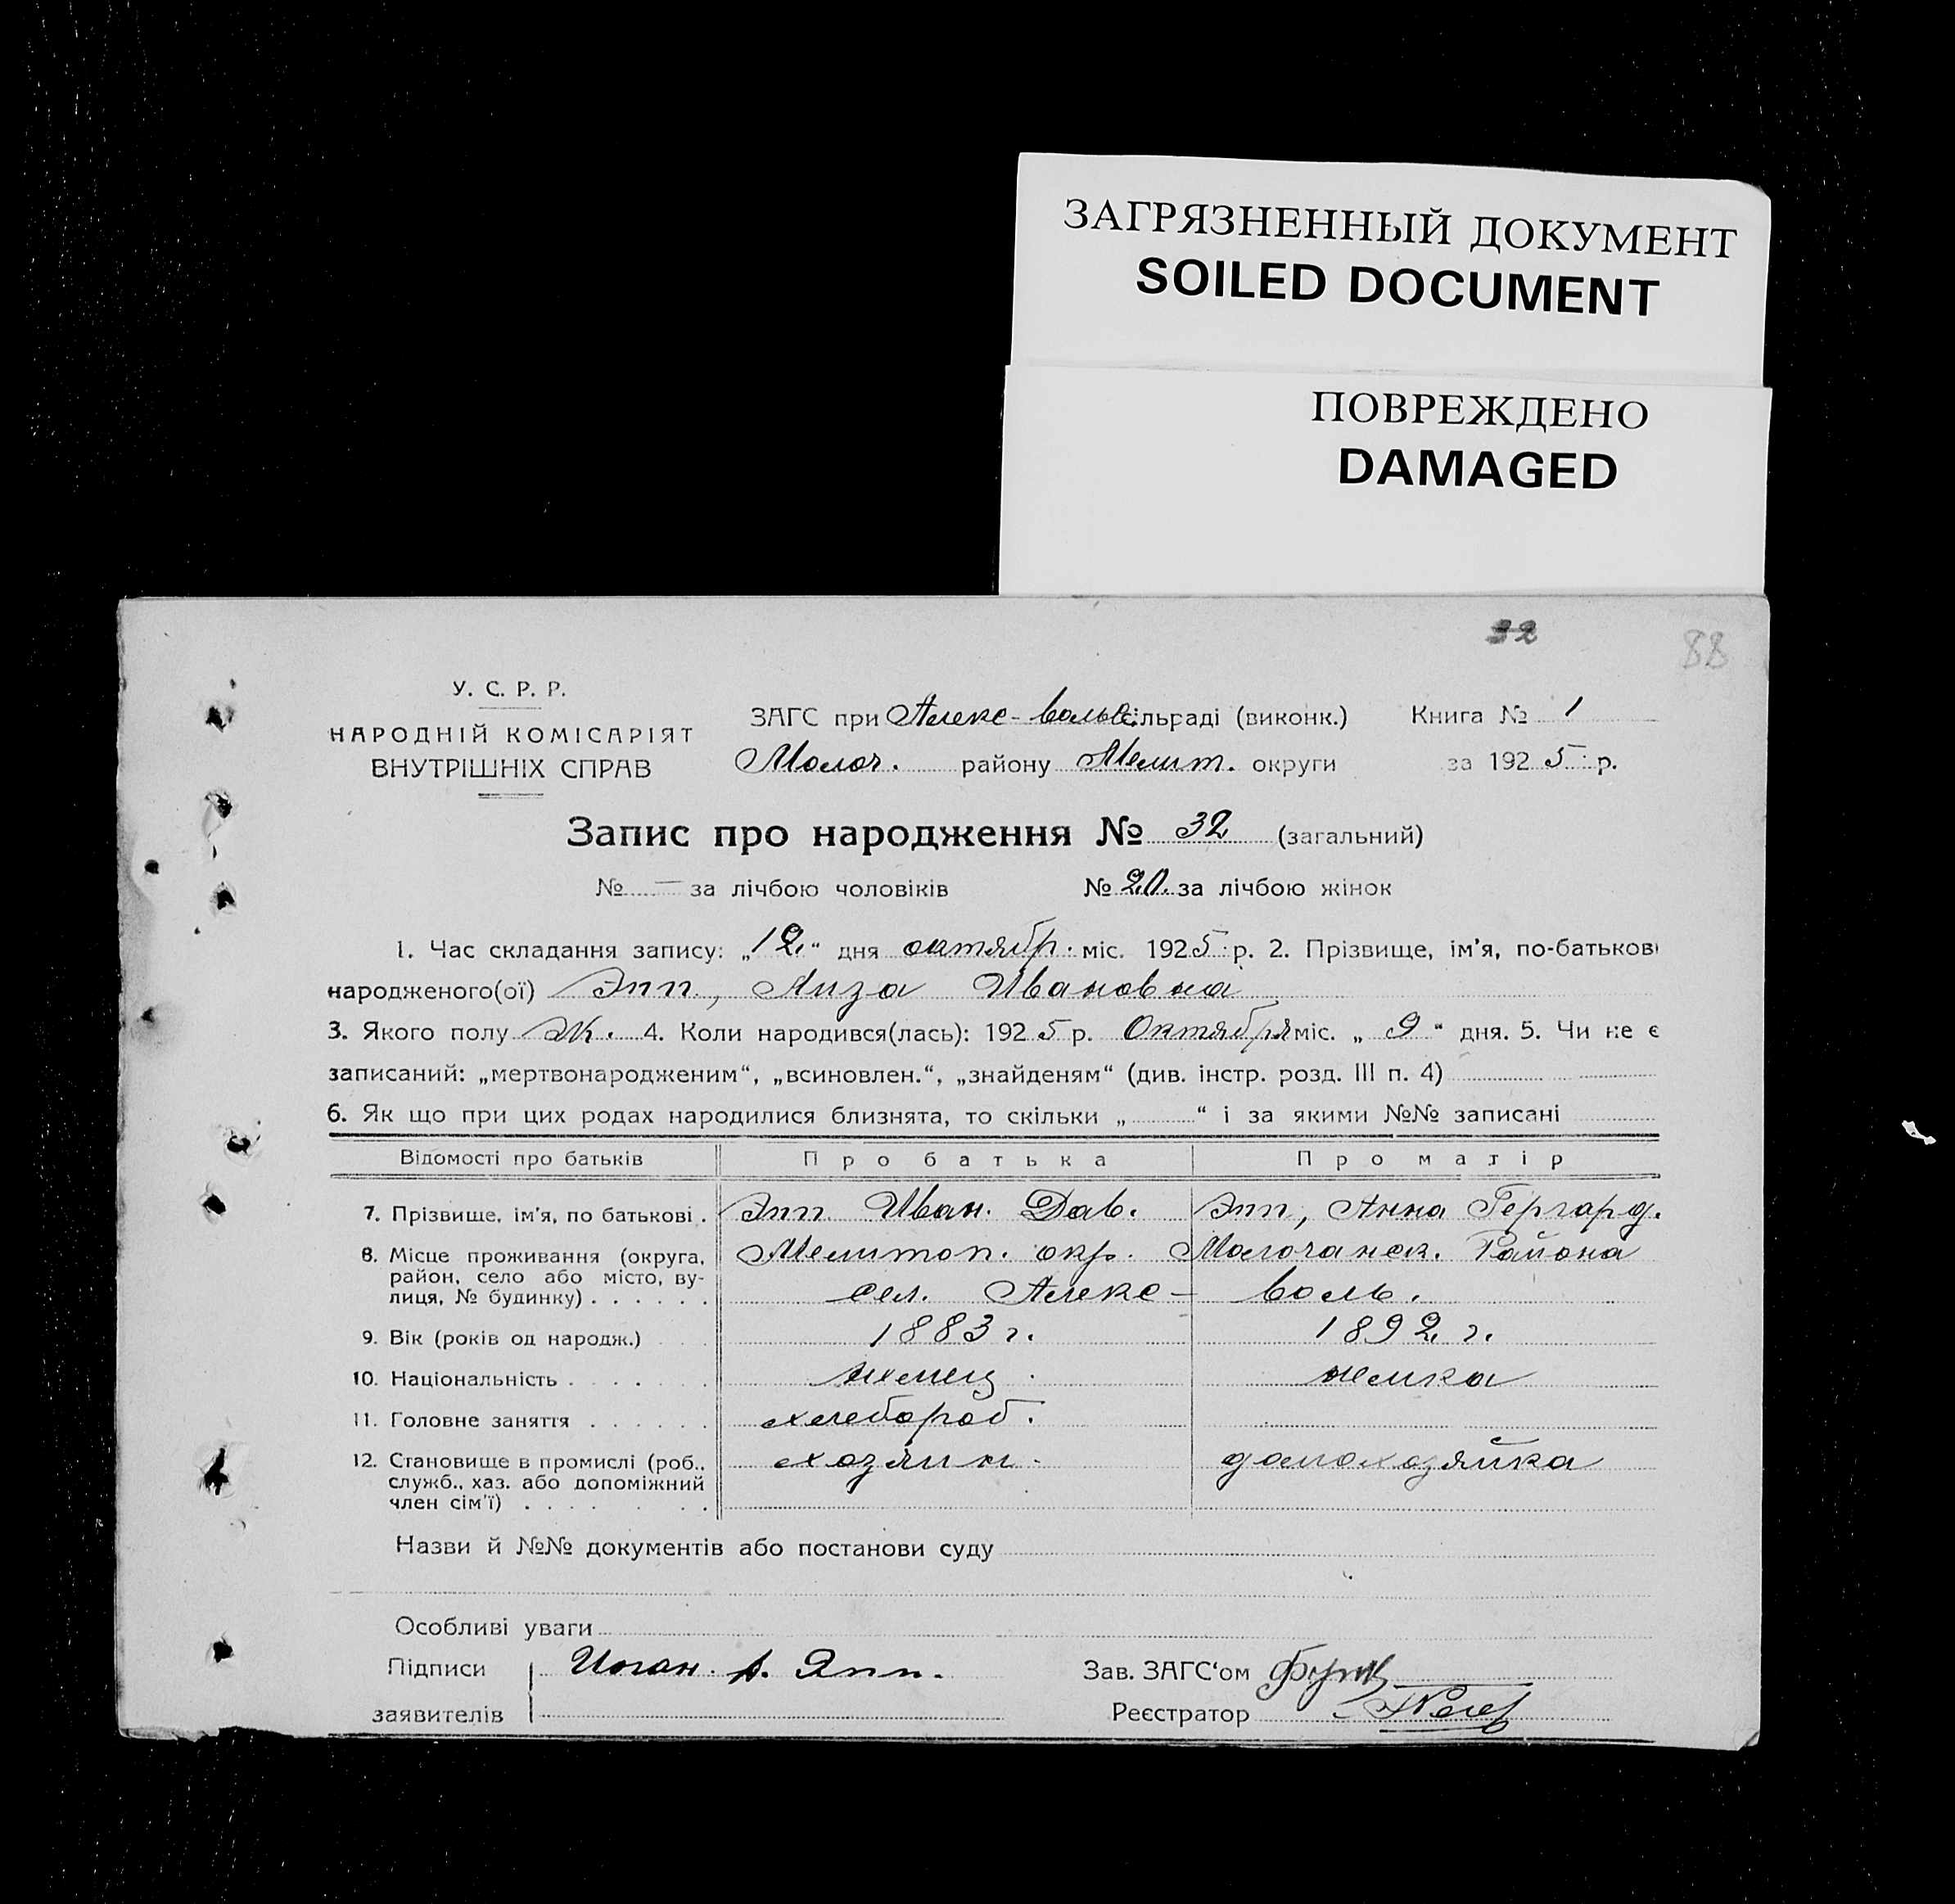 ЗАГРЯЗНЕННЫЙ ДОКУМЕНТ
SOILED DOCUMENT
ПОВРЕЖДЕНО
DAMAGED
32
88
У. С. Р. Р.
НАРОДНІЙ КОМІСАРІЯТ
ВНУТРІШНІХ СПРАВ
ЗАГС при Алекс-вольск. сільраді (виконк.) Книга № 1
Молоч. району Мелит. округи за 1925 р.
Запис про народження № 32 (загальний)
№ — за лічбою чоловіків № 20. за лічбою жінок
1. Час складання запису: „12“ дня октябр. міс. 1925 р. 2. Прізвище, ім'я, по-батькові
народженого(ої) Эпп, Лиза Ивановна
3. Якого полу ж. 4. Коли народився(лась): 1925 р. Октября міс. „9“ дня. 5. Чи не є
записаний: „мертвонародженим“, „всиновлен.“, „знайденям“ (див. інстр. розд. III п. 4)
6. Як що при цих родах народилися близнята, то скільки „ “ і за якими №№ записані
Відомості про батьків Про батька Про матір
7. Прізвище, ім'я, по батькові . Эпп Иван. Дав. Эпп, Анна Гергард.
8. Місце проживання (округа, Мелитоп. окр. Молочанск. Района
район, село або місто, ву-
лиця, № будинку) . . . . . . сел. Алекс- воль.
9. Вік (років од народж.) 1883 г. 1892 г.
10. Національність . . . . . немец. немка
11. Головне заняття . . . . . . хлебороб.
12. Становище в промислі (роб., хозяин. домохозяйка
служб., хаз. або допоміжний
член сім'ї) . . . . . .
Назви й №№ документів або постанови суду
Особливі уваги
Підписи Иоган. Д. Эпп. Зав. ЗАГС'ом
заявителів Реєстратор